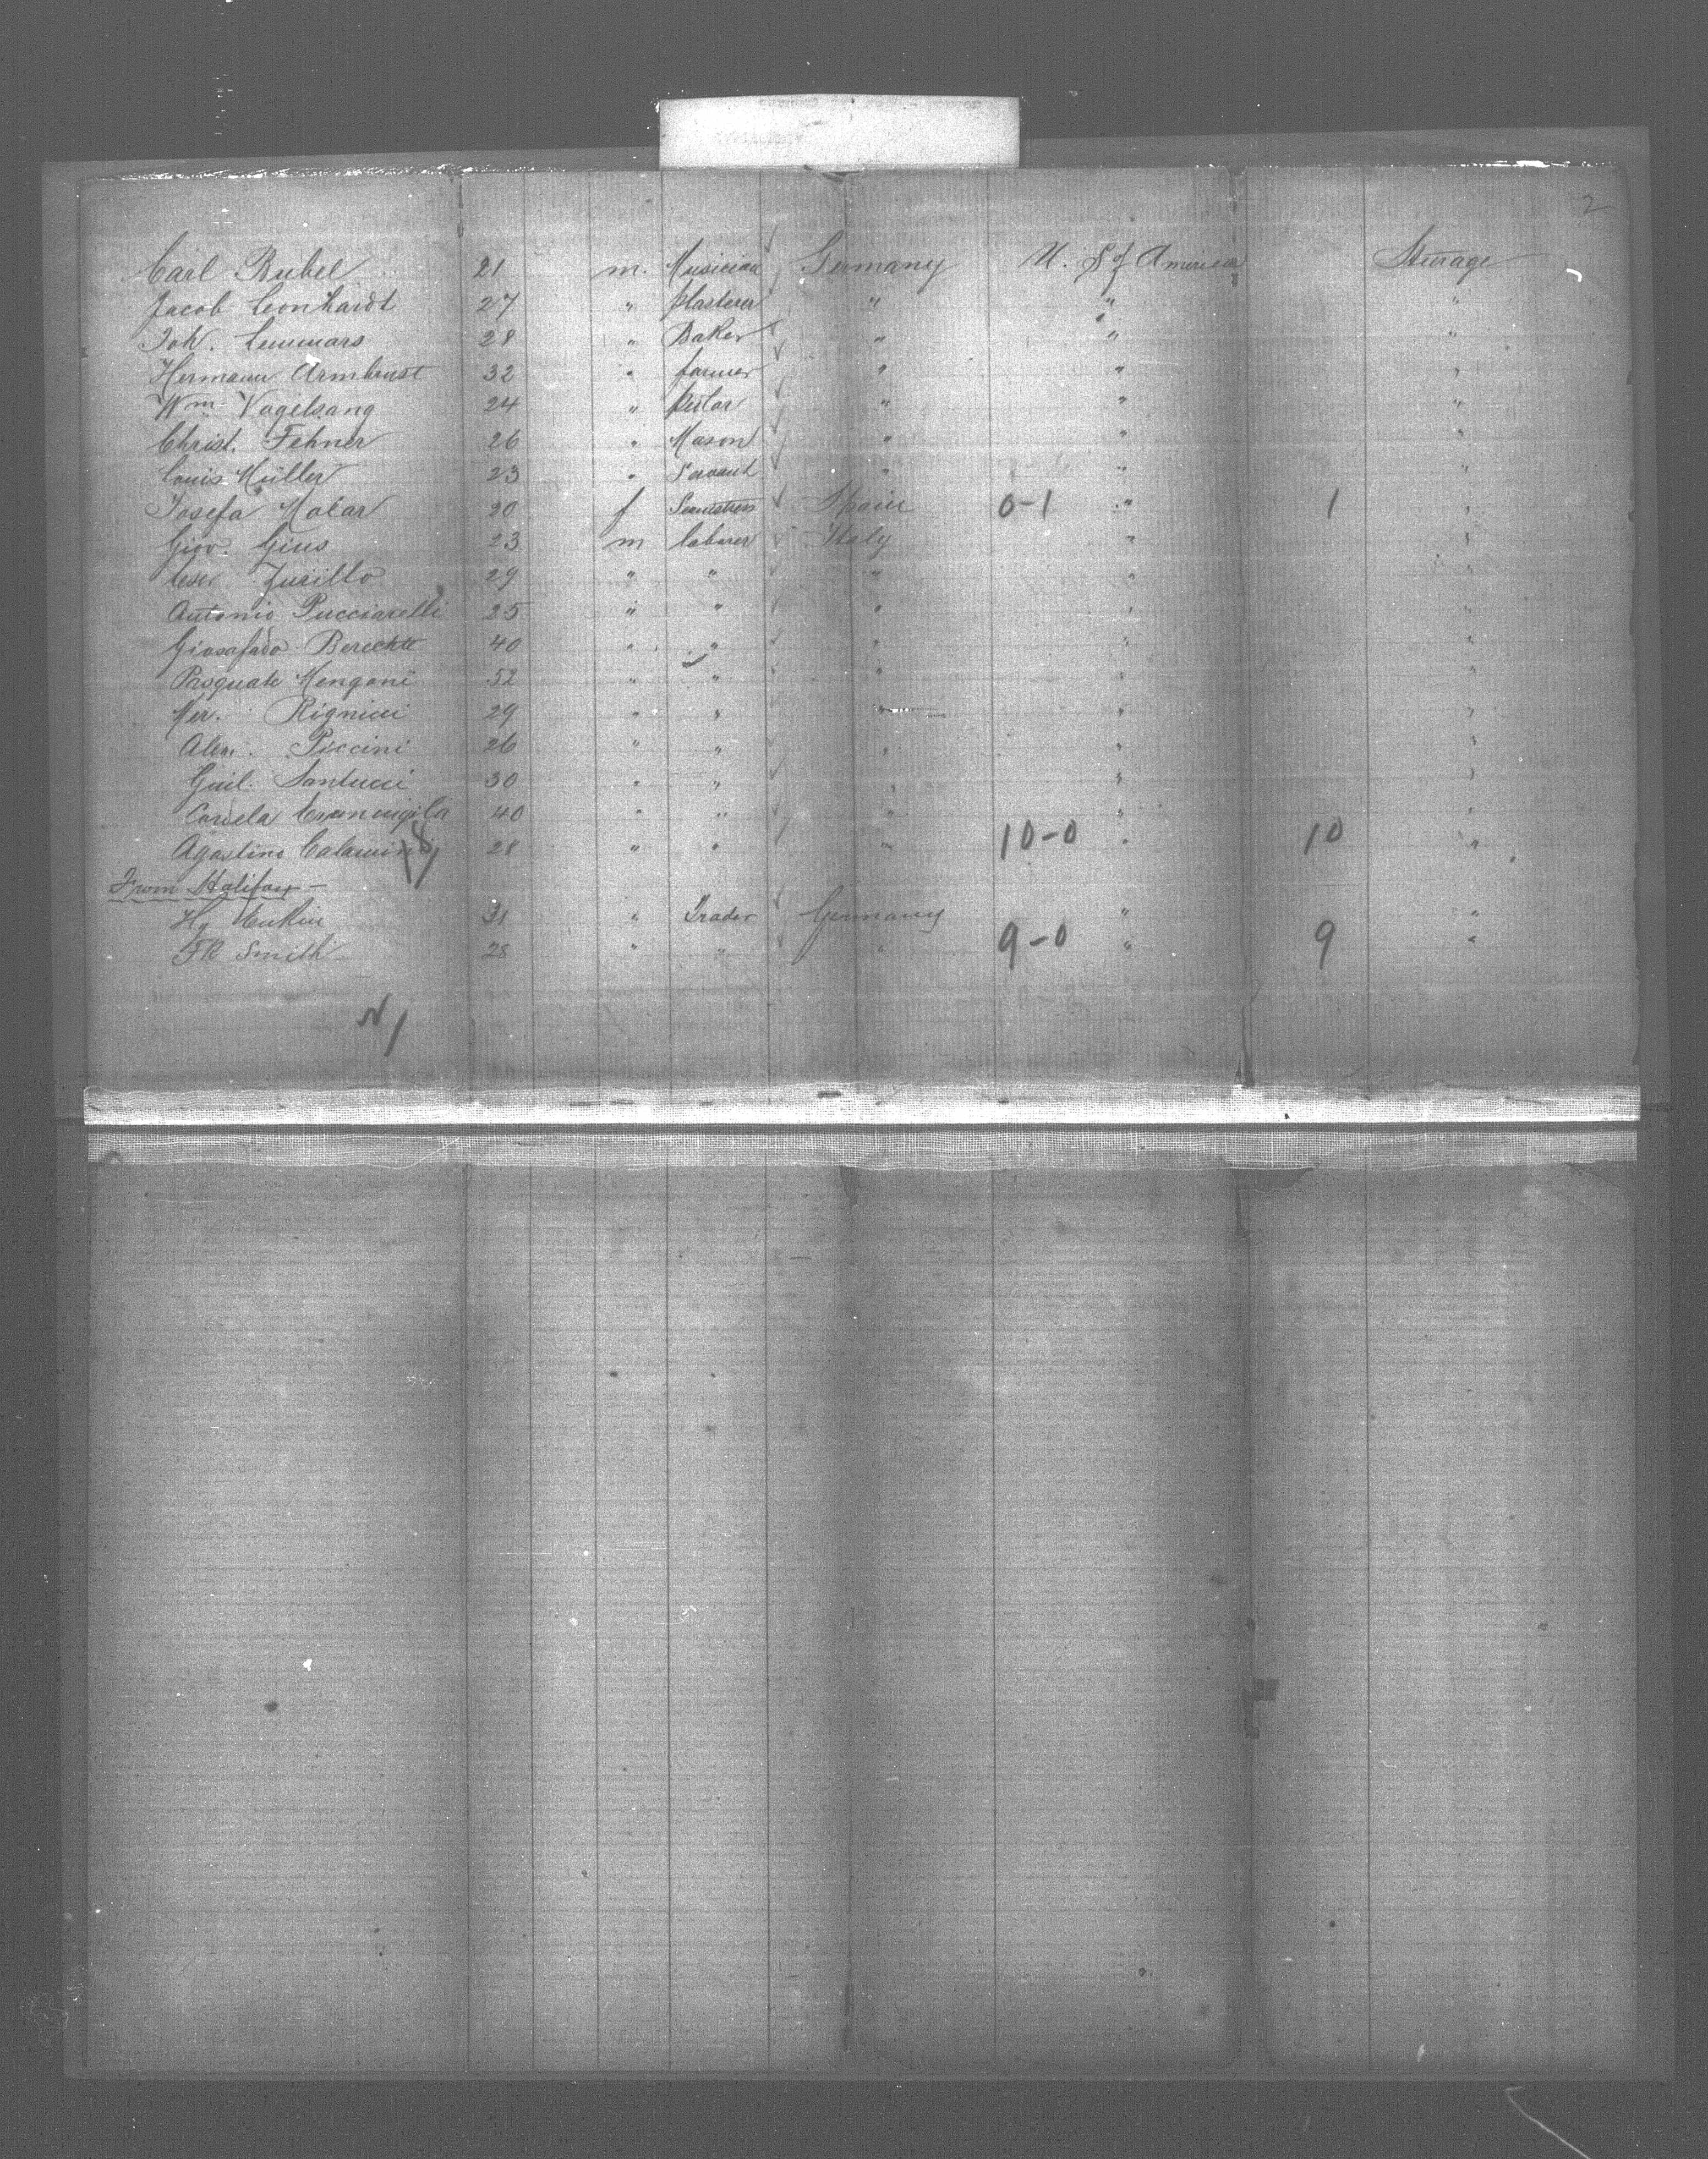 2
Carl Bubel 21 m. Musician Germany U. S of America Steerage
Jacob Leonhardt 27 " plasterer " " "
Joh. Lemmars 28 " Baker " " "
Hermann Armbrust 32 " farmer " " "
Wm. Vogelsang 24 " " " "
Christ. Fehner 26 " Mason " " "
Louis Müller 23 " Servant " " "
Josefa Molar 20 f Seamstress Spain 0-1 " 1 "
Giov. Gius 23 m laborer Italy " "
29 " " " " "
Antonio Pucciarelli 25 " " " " "
Giosafado Berechte 40 " " " " "
Pasquale Mengoni 52 " " " " "
Rignicci 29 " " " " "
Alex. Piccini 26 " " " " "
Guil. Santucci 30 " " " " "
40 " " " " "
Agostino 28 " " " 10-0 " 10 "
From Halifax —
Hy 31 " Trader Germany " "
FR Smith 28 " " " 9-0 " 9 "